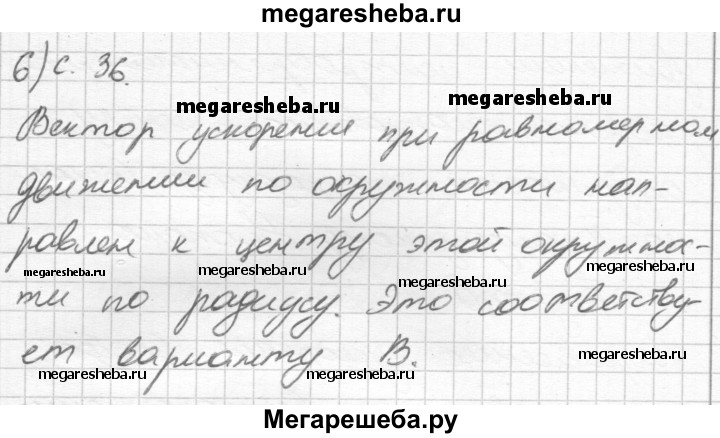 megaresheba.ru
6) с. 36.
megaresheba.ru
megaresheba.ru
Вектор ускорения при равномерном
движении по окружности нап-
равлен к центру этой окружнос-
megaresheba.ru
megaresheba.ru
megaresheba.ru
ти по радиусу. Это соответству-
ет варианту В.
megaresheba.ru
megaresheba.ru
megaresheba.ru
Мегарешеба.ру